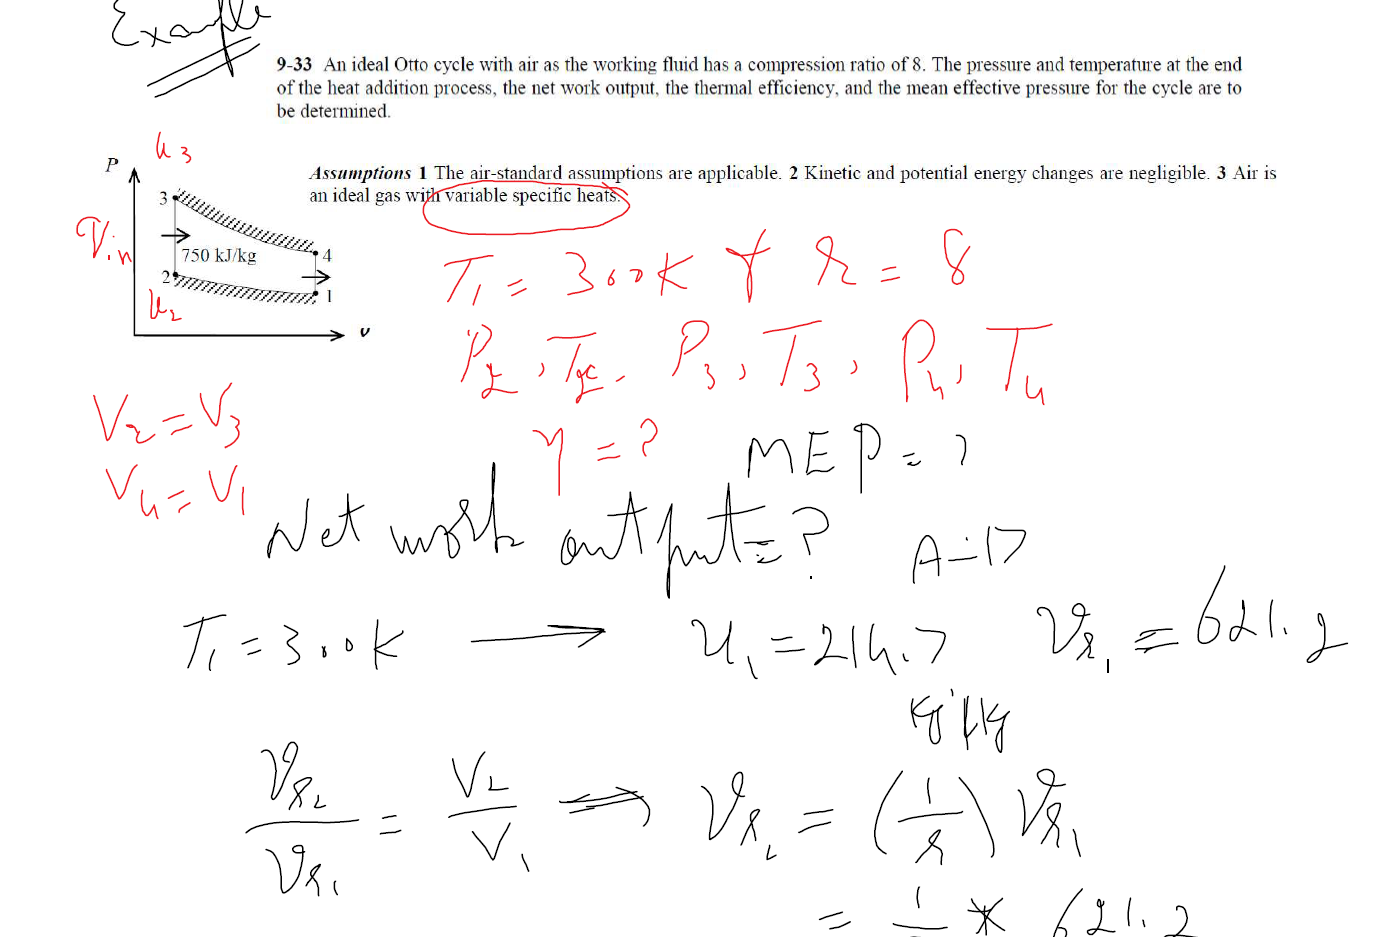 Example
9-33 An ideal Otto cycle with air as the working fluid has a compression ratio of 8. The pressure and temperature at the end
of the heat addition process, the net work output, the thermal efficiency, and the mean effective pressure for the cycle are to
be determined.
u3
P
Assumptions 1 The air-standard assumptions are applicable. 2 Kinetic and potential energy changes are negligible. 3 Air is
an ideal gas with variable specific heats.
3
qin
750 kJ/kg
4
2
1
u2
v
T1 = 300K & r = 8
P2, T2, P3, T3, P4, T4
V2 = V3
V4 = V1
η = ? MEP = ?
Net work output = ?
A-17
T1 = 300K → u1 = 214.7 vr1 = 621.2
kJ/kg
vr2/vr1 = V2/V1 ⟹ vr2 = (1/r) vr1
= 1 * 621.2